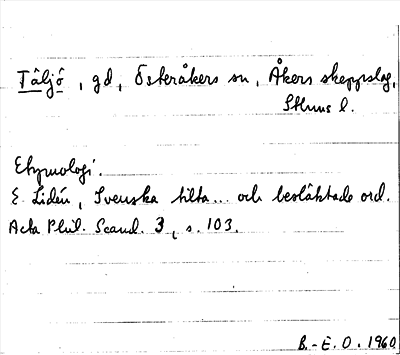 Täljö, gd, Österåkers sn, Åkers skeppslag,
Sthms l.
Etymologi.
E. Lidén, Svenska tilta... och besläktade ord.
Acta Phil. Scand. 3, s. 103.
B.-E. O. 1960